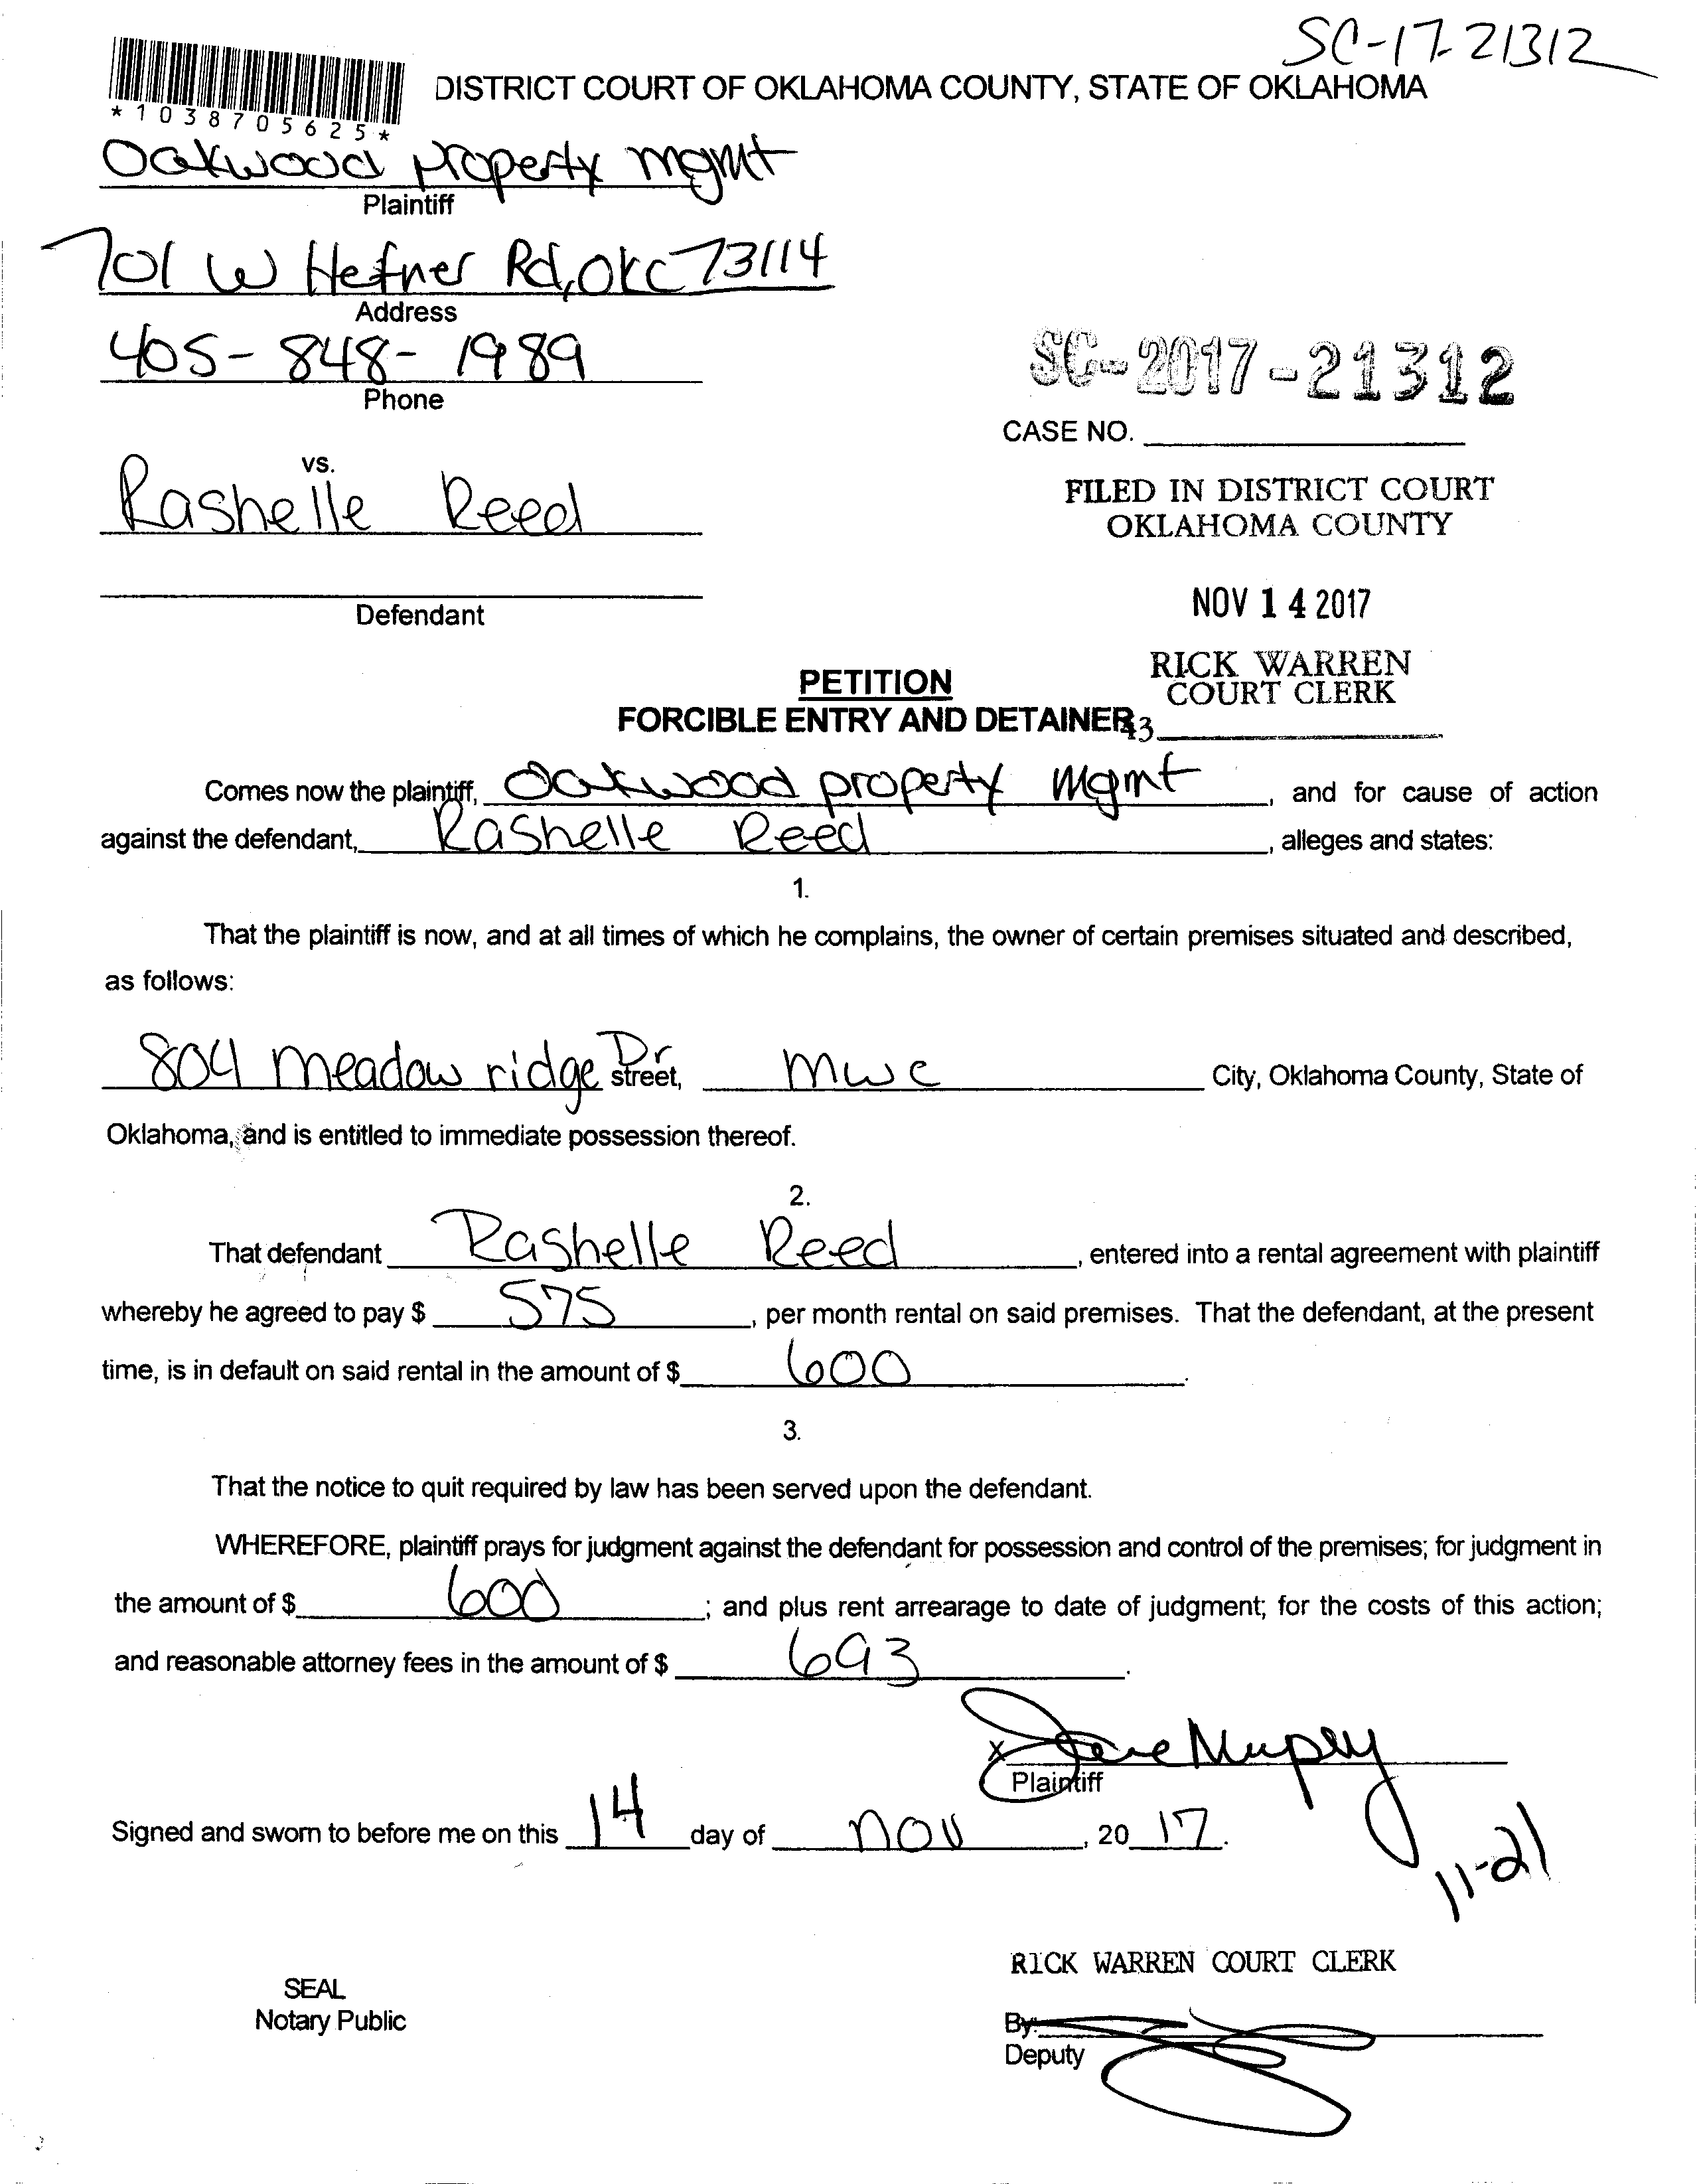 SC-17-21312
*1038705625*
DISTRICT COURT OF OKLAHOMA COUNTY, STATE OF OKLAHOMA
Oakwood property mgmt
Plaintiff
701 W Hefner Rd, OKC 73114
Address
405-848-1989
Phone
SC-2017-21312
CASE NO.
vs.
Rashelle Reed
FILED IN DISTRICT COURT
OKLAHOMA COUNTY
Defendant
NOV 14 2017
RICK WARREN
COURT CLERK
PETITION
FORCIBLE ENTRY AND DETAINER
43
Comes now the plaintiff, Oakwood property mgmt, and for cause of action
against the defendant, Rashelle Reed, alleges and states:
1.
That the plaintiff is now, and at all times of which he complains, the owner of certain premises situated and described,
as follows:
804 meadow ridge Dr street, mwc City, Oklahoma County, State of
Oklahoma, and is entitled to immediate possession thereof.
2.
That defendant Rashelle Reed, entered into a rental agreement with plaintiff
whereby he agreed to pay $ 575, per month rental on said premises. That the defendant, at the present
time, is in default on said rental in the amount of $ 600.
3.
That the notice to quit required by law has been served upon the defendant.
WHEREFORE, plaintiff prays for judgment against the defendant for possession and control of the premises; for judgment in
the amount of $ 600; and plus rent arrearage to date of judgment; for the costs of this action;
and reasonable attorney fees in the amount of $ 693.
X
Plaintiff
Signed and sworn to before me on this 14 day of nov, 20 17.
11-21
RICK WARREN COURT CLERK
SEAL
Notary Public
By:
Deputy